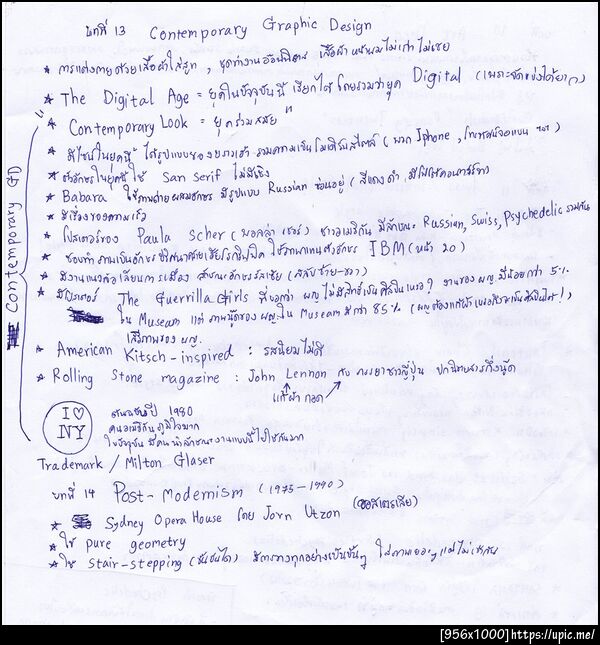 บทที่ 13 Contemporary Graphic Design
* การแต่งกายด้วยเสื้อผ้าใส่สูท, ชุดทำงานออฟฟิศ เสื้อผ้า หน้าผมไม่เก่า ไม่เชย
* The Digital Age = ยุคในปัจจุบันนี้ เรียกได้โดยรวมว่ายุค Digital (เพราะจัดแบ่งได้ยาก)
* "Contemporary Look = ยุคร่วมสมัย"
* ดีไซน์ในยุคนี้ ได้รูปแบบของ รวมความเป็นโมเดิร์นสไตล์ (พวก Iphone, โทรทัศน์จอแบน ฯลฯ)
* ตัวอักษรในยุคนี้ใช้ San serif ไม่มีเชิง
* Babara ใช้ภาพถ่ายผสมอักษร มีรูปแบบ Russian ซ่อนอยู่ (สีแดงดำ
* มีเรื่องของความเร็ว
* โปสเตอร์ของ Paula Scher (พอลล่า เชอร์) ชาวอเมริกัน มีลักษณะ Russian, Swiss, Psychedelic รวมกัน
* ใช้ภาพแทนตัวอักษร IBM (หน้า 20)
* มีงานแนวล้อเลียนการเมือง ลักษณะอักษรรัสเซีย (สลับซ้าย-ขวา)
* มีโปสเตอร์ The Guerrilla Girls ที่บอกว่า ผญ. ไม่มีสิทธิ์เป็นศิลปินเหรอ? งานของ ผญ. มีน้อยกว่า 5%
ใน Museum แต่ ภาพนู้ดของ ผญ. ใน Museum มีกว่า 85% (ผญ. ต้องแก้ผ้า
เสรีภาพของ ผญ.
* American Kitsch-inspired : รสนิยมไม่ดี
* Rolling Stone magazine : John Lennon กับ ภรรยาชาวญี่ปุ่น ปกนิตยสารกึ่งนู้ด
แก้ผ้า กอด
Contemporary (ต่อ)
I ♡ NY
ปี 1980
คนอเมริกันภูมิใจมาก
ในปัจจุบัน มีคนนำลักษณะงานแบบนี้ไปใช้กันมาก
Trademark / Milton Glaser
บทที่ 14 Post-Modernism (1975-1990)
* Sydney Opera House โดย Jorn Utzon (ออสเตรเลีย)
* ใช้ pure geometry
* ใช้ stair-stepping (ขั้นบันได) มีการวางทุกอย่างเป็นขั้นๆ
[956x1000]https://upic.me/